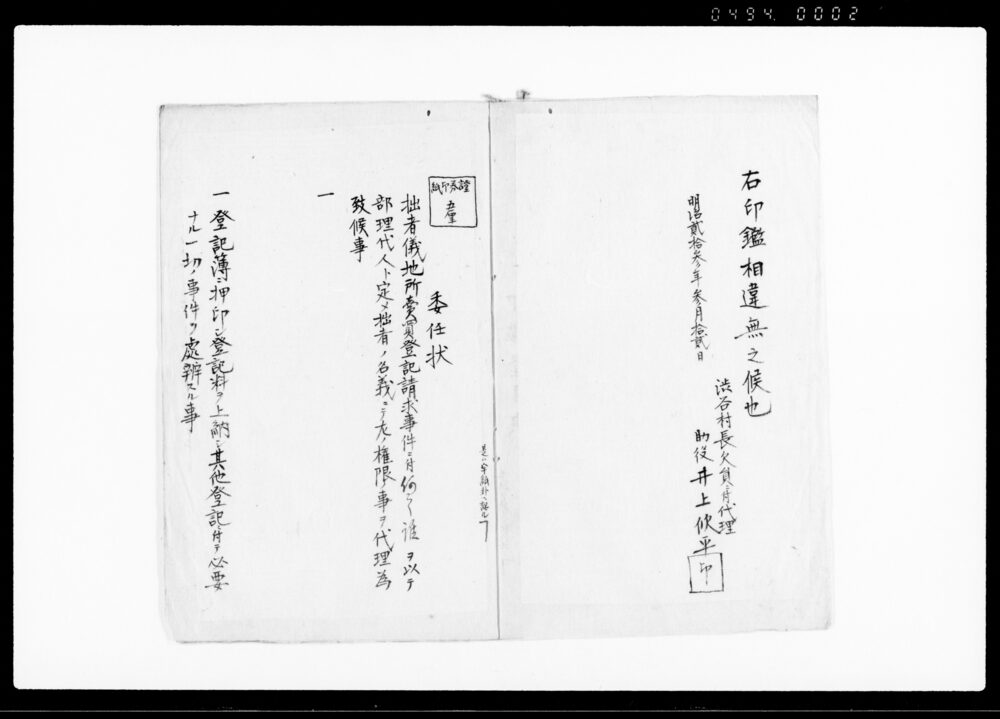 0494 0002
右印鑑相違無之候也
明治貳拾参年参月拾貳日
渋谷村長欠員ニ付代理
助役 井上欣平 印
證券印紙
五厘
委任状
拙者儀地所賣買登記請求事件ニ付何ノ誰ヲ以テ
部理代人ト定メ拙者ノ名義ニテ左ノ権限ノ事ヲ代理為
致候事
一
一 登記簿ニ押印シ登記料ヲ上納シ其他登記ニ付テ必要
ナル一切ノ事件ヲ處辨スル事